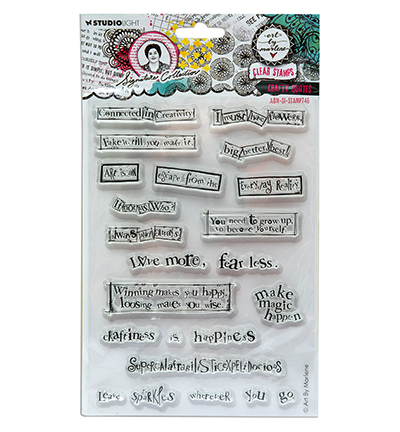 STUDIOLIGHT
art by marlene
Signature Collection
CLEAR STAMPS
CRAFTY QUOTES
ABM-SI-STAMP746
Connected in Creativity!
I must have flowers,
Fake it till you make it.
big better best!
Art is an
escape from the
Everyday Reality
You need to grow up,
to become yourself.
always
Love more, fear less.
Winning makes you happy,
loosing makes you wise.
make
magic
happen
craftiness is happiness
leave sparkles wherever you go
© Art By Marlene